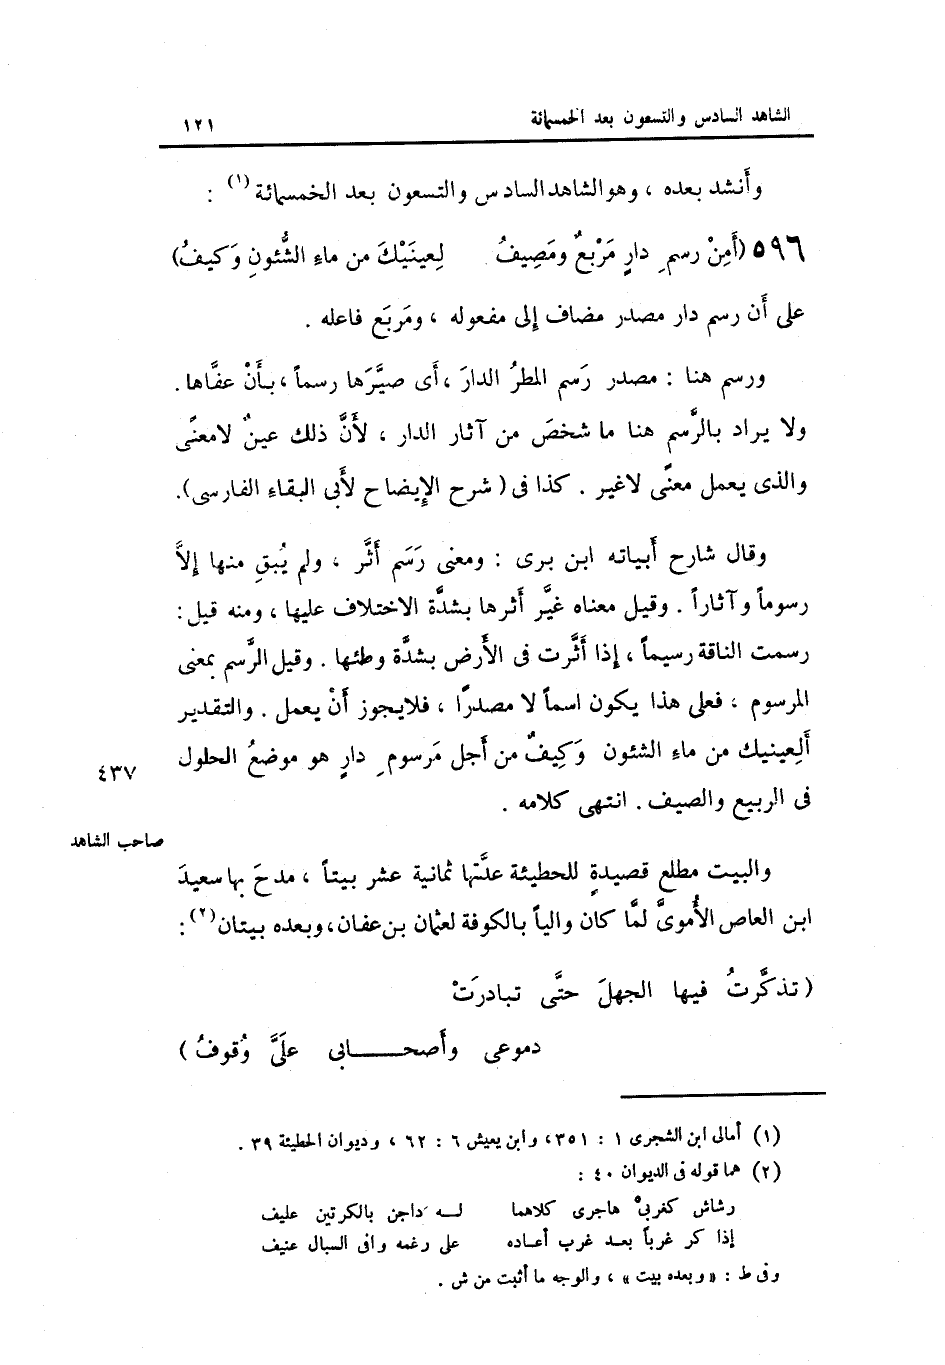 الشاهد السادس والتسعون بعد الخمسمائة ١٢١
وأنشد بعده ، وهو الشاهد السادس والتسعون بعد الخمسمائة (١) :
٥٩٦ (أَمِنْ رسمِ دارٍ مَرْبعٌ ومَصِيفُ لِعينَيْكَ من ماءِ الشُّئونِ وَكيفُ)
على أَن رسم دار مصدر مضاف إلى مفعوله ، ومَربَع فاعله .
ورسم هنا : مصدر رَسَم المطرُ الدارَ ، أَى صيَّرَها رسماً ، بأَنْ عفَّاها .
ولا يراد بالرَّسم هنا ما شخصَ من آثار الدار ، لأَنَّ ذلك عينٌ لامعنًى
والذى يعمل معنًى لاغير . كذا فى ( شرح الإِيضاح لأَبى البقاء الفارسى).
وقال شارح أَبياته ابن برى : ومعنى رَسَم أَثَّر ، ولم يُبقِ منها إِلاَّ
رسوماً وآثاراً . وقيل معناه غيَّر أثرها بشدَّة الاختلاف عليها ، ومنه قيل :
رسمت الناقة رسيماً ، إِذا أَثَّرت فى الأَرض بشدَّة وطئها . وقيل الرَّسم بمعنى
المرسوم ، فعلى هذا يكون اسماً لا مصدرًا ، فلايجوز أَنْ يعمل . والتقدير
أَلِعينيك من ماءِ الشئون وَكِيفٌ من أَجل مَرسومِ دارٍ هو موضعُ الحلول
٤٣٧
فى الربيع والصيف . انتهى كلامه .
صاحب الشاهد
والبيت مطلع قصيدةٍ للحطيئة عدَّتها ثمانية عشر بيتاً ، مدحَ بها سعيدَ
ابن العاص الأُموىَّ لمَّا كان والياً بالكوفة لعثمان بن عفان ، وبعده بيتان (٢) :
( تذكَّرتُ فيها الجهلَ حتَّى تبادرَتْ
دموعى وأَصحـــــابى علَىَّ وُقوفُ )
(١) أمالى ابن الشجرى ١ : ٣٥١ ، وابن يعيش ٦ : ٦٢ ، وديوان الحطيئة ٣٩ .
(٢) هما قوله فى الديوان ٤٠ :
رشاش كغربىْ هاجرى كلاهما لـــه داجن بالكرتين عليف
إذا كر غرباً بعـد غرب أعـاده على رغمه وافى السبال عنيف
وفى ط : « وبعده بيت » ، والوجه ما أثبت من ش .